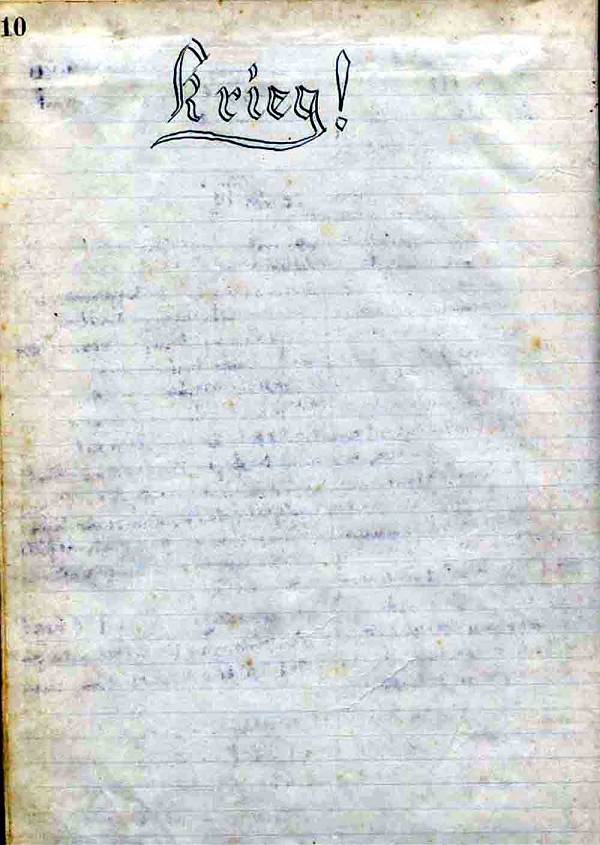 10
Krieg!